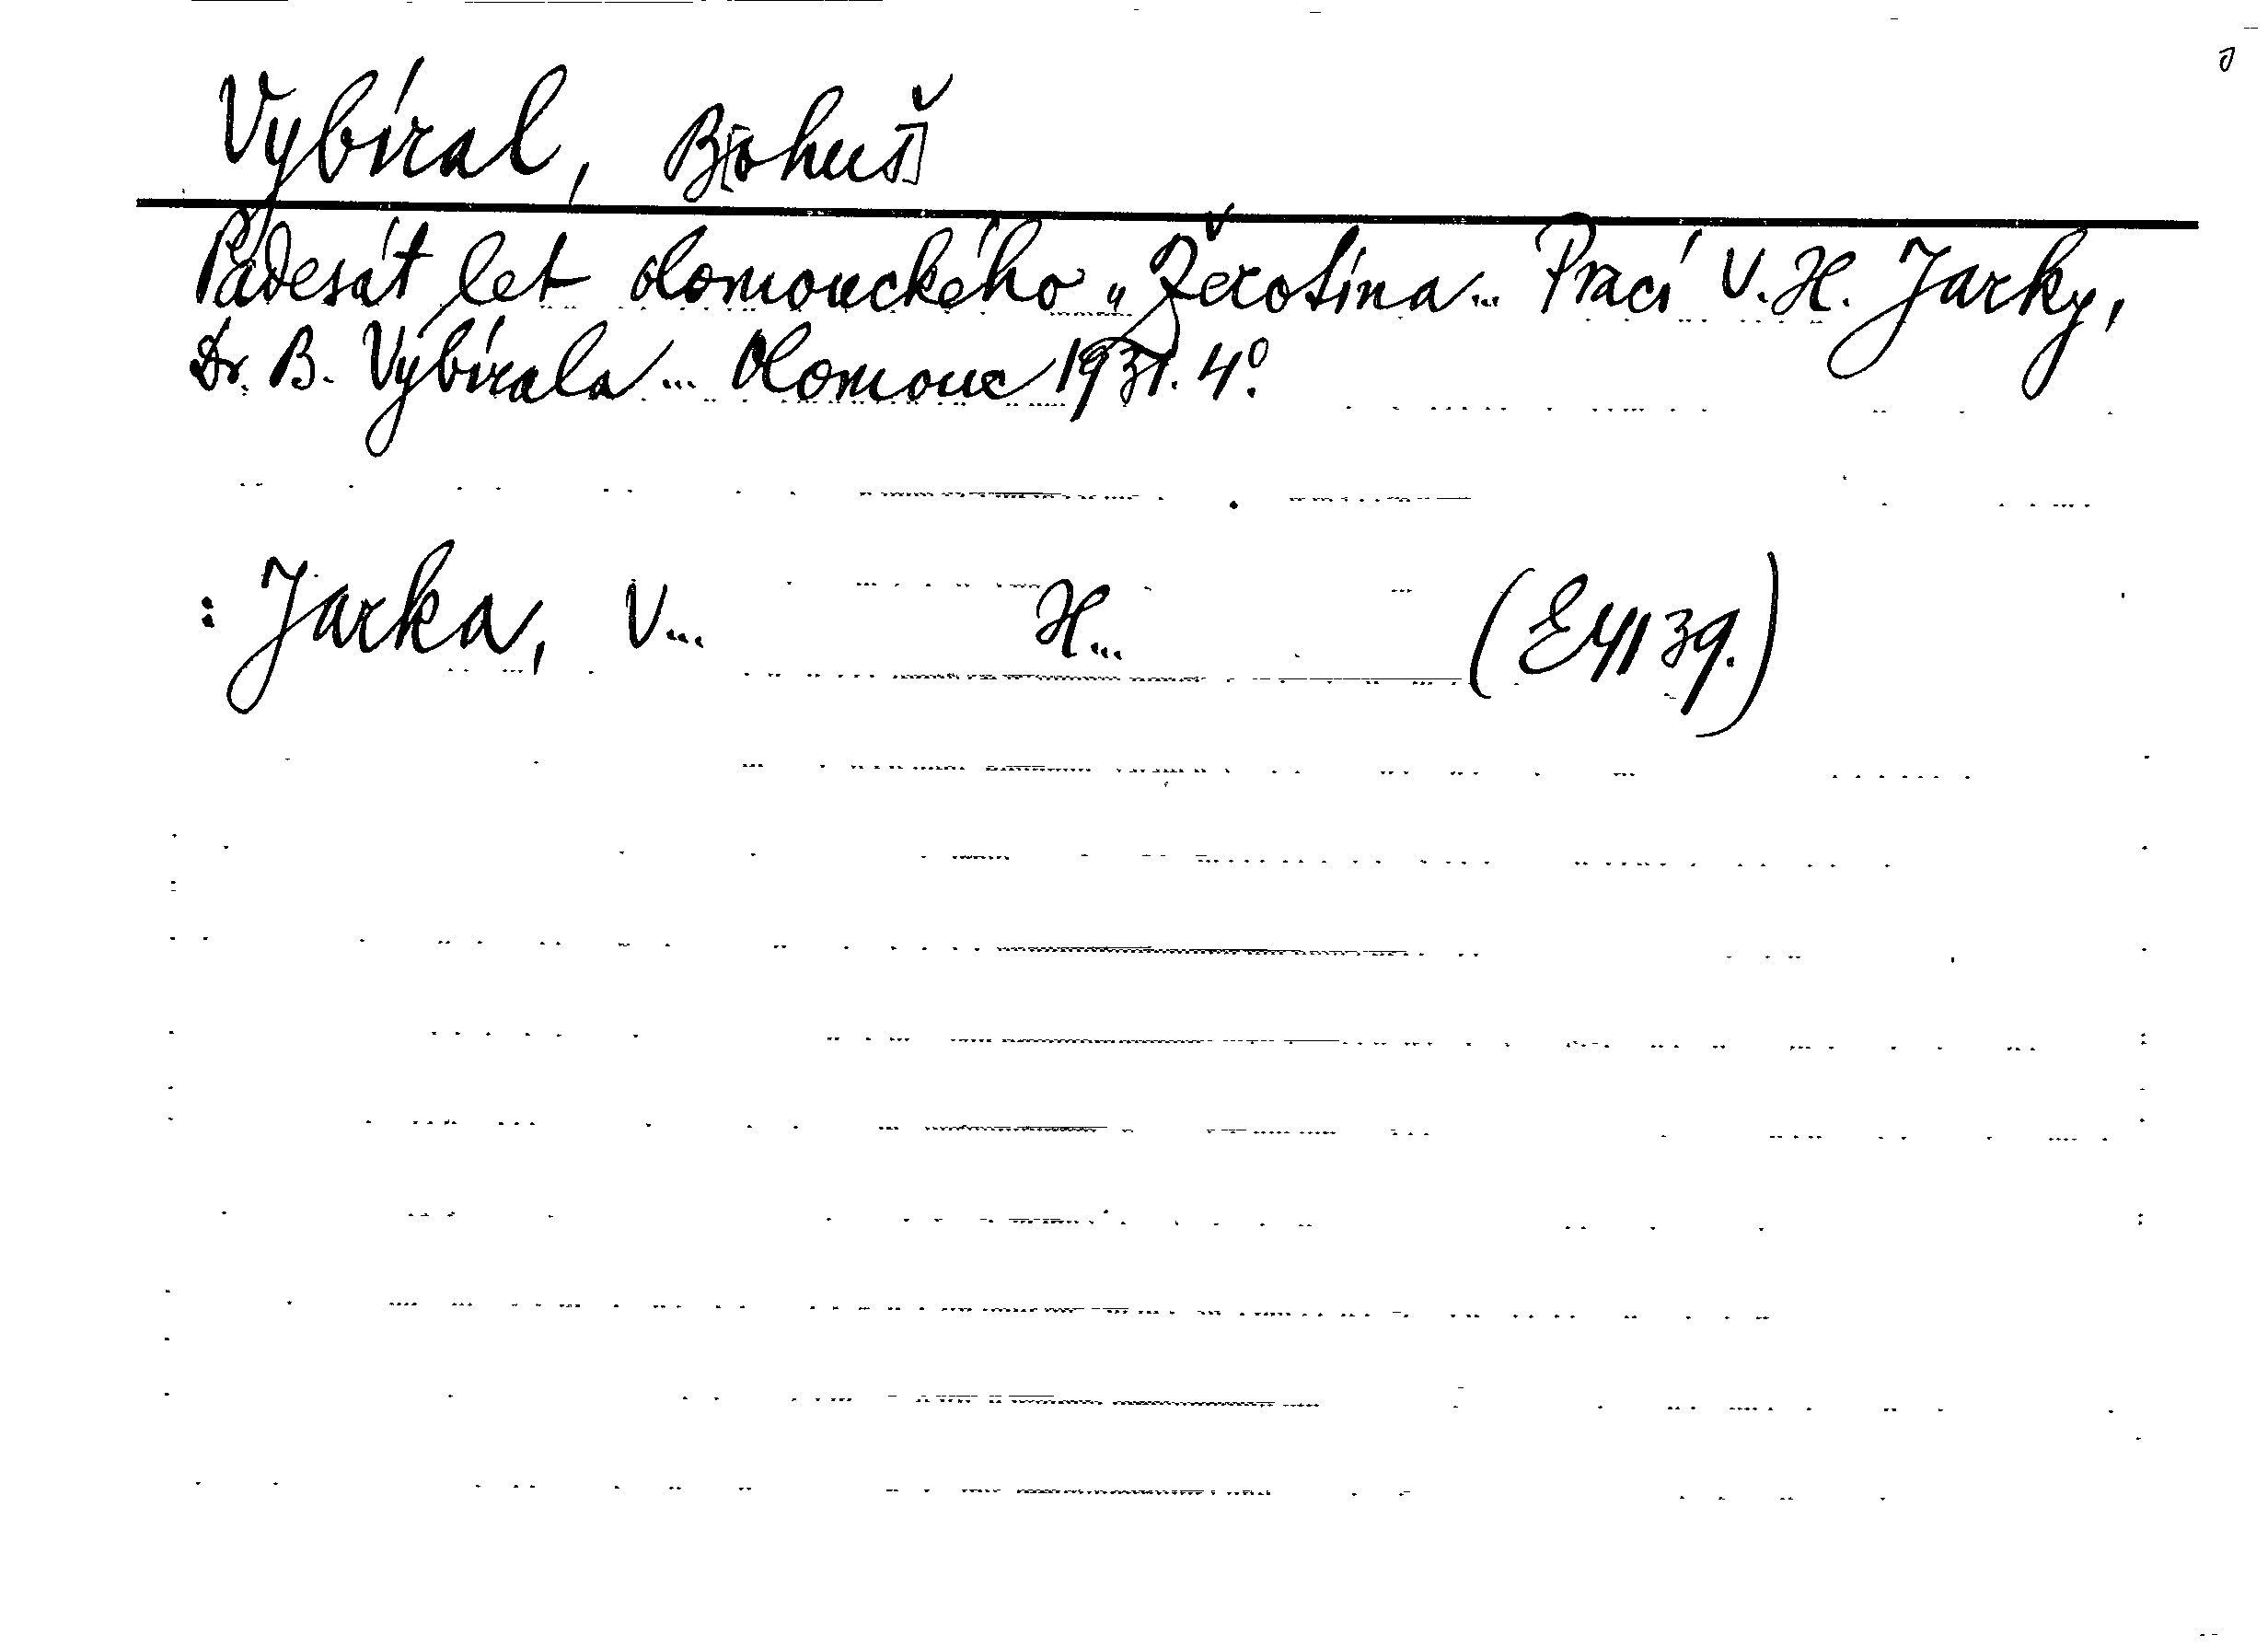 Vybíral, B[ohuš]
Padesát let olomouckého „Žerotína... Prací V. H. Jarky,
Dr. B. Vybírala... Olomouc 1931. 4°.
: Jarka, V... H... (E4139.)